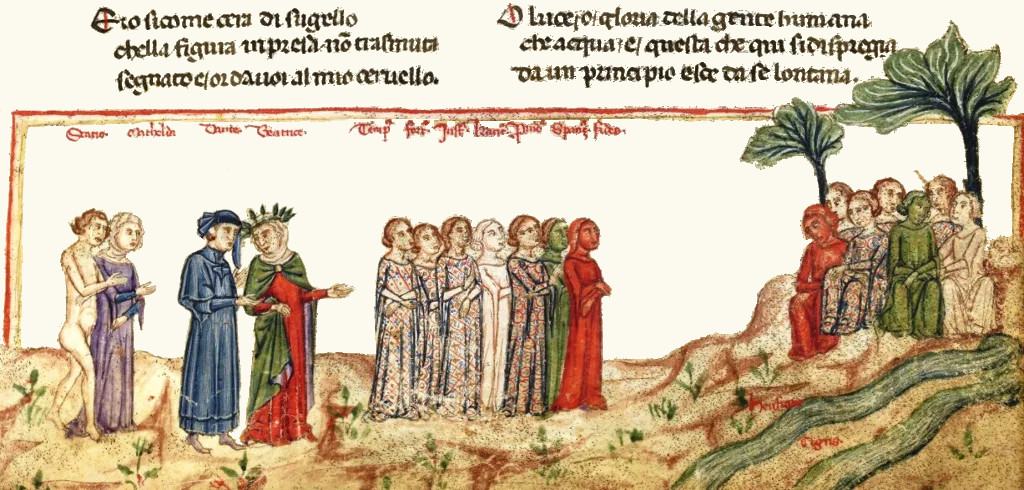 Et io sicome cera di sugello
chella figura inpresa nõ trasmuta
segnato e or da voi al mio cervello.
O luce o gloria della gente humana
che acqua e questa che qui si dispiega
da un principio e se da se lontana.
Statio. Mathelda Dante. Beatrice. Temp. fort. Just. Prud. fides.
Tigris.